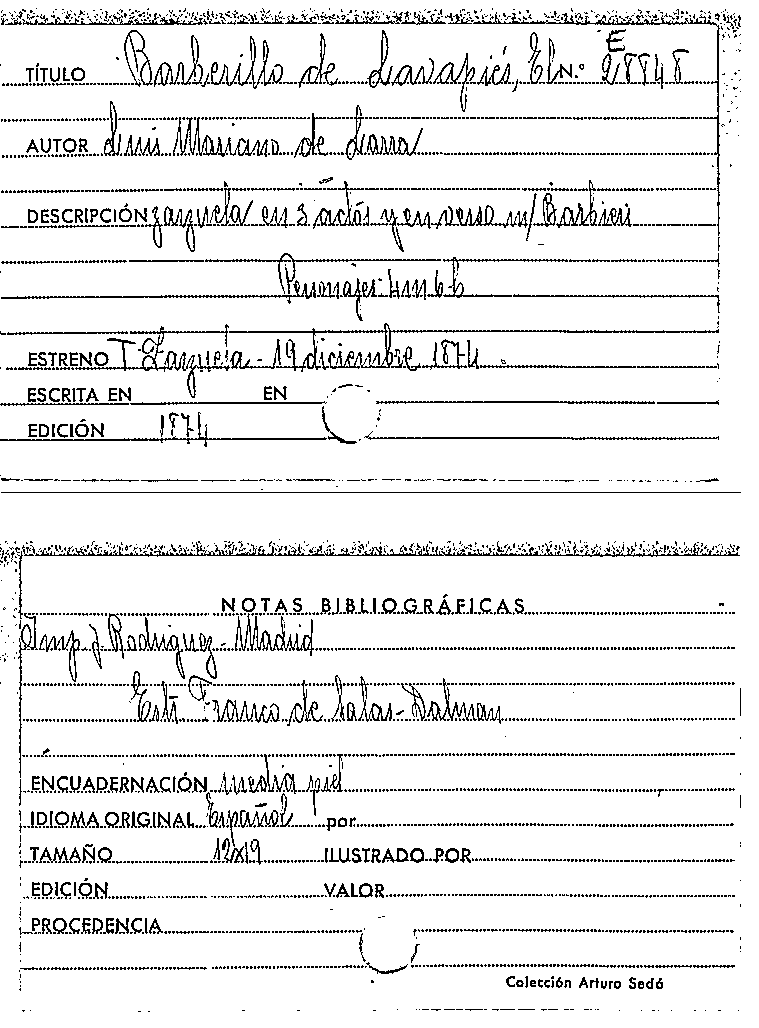 TÍTULO Barberillo de Lavapiés, El N.º E 28848
AUTOR Luis Mariano de Larra
DESCRIPCIÓN zarzuela en 3 actos y en verso m/ Barbieri
Personajes 4m 6h
ESTRENO T Zarzuela - 19 diciembre 1874.
ESCRITA EN EN
EDICIÓN 1874
NOTAS BIBLIOGRÁFICAS
Imp J. Rodriguez - Madrid
Estr. Franco de Salas - Dalmau
ENCUADERNACIÓN media piel
IDIOMA ORIGINAL Español por
TAMAÑO 12x19 ILUSTRADO POR
EDICIÓN VALOR
PROCEDENCIA
Colección Arturo Sedó